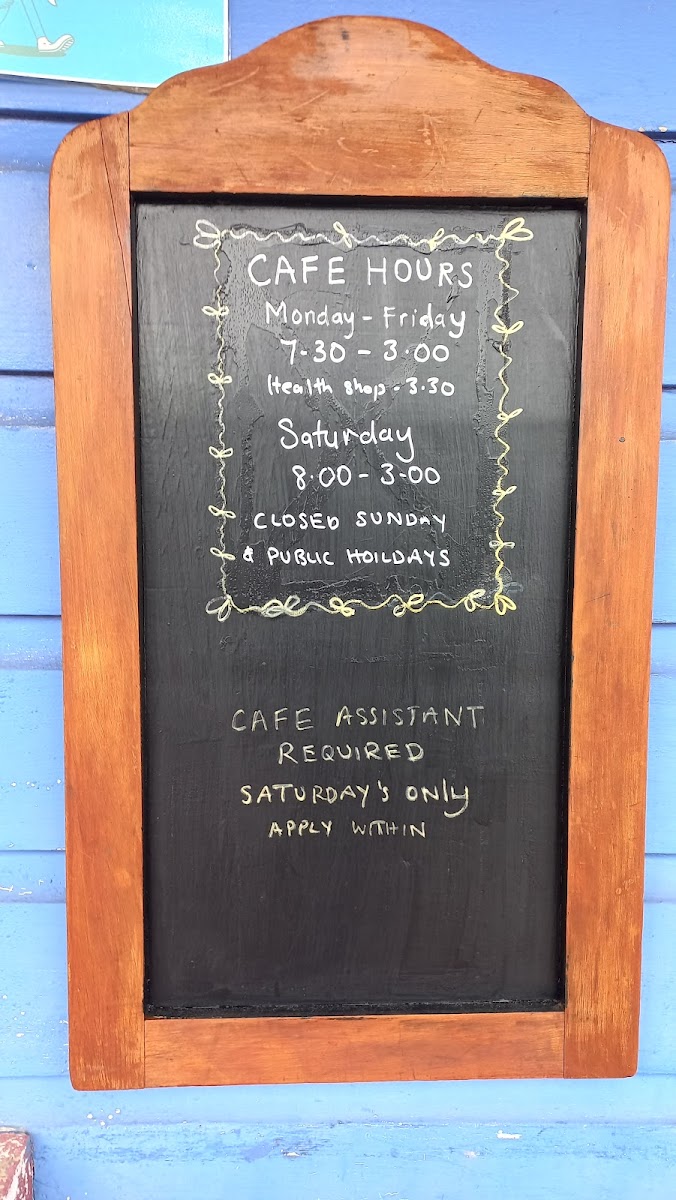 CAFE HOURS
Monday - Friday
7-30 - 3.00
Health shop - 3.30
Saturday
8.00 - 3-00
CLOSED SUNDAY
& PUBLIC HOILDAYS
CAFE ASSISTANT
REQUIRED
SATURDAY'S ONly
APPLY WITHIN